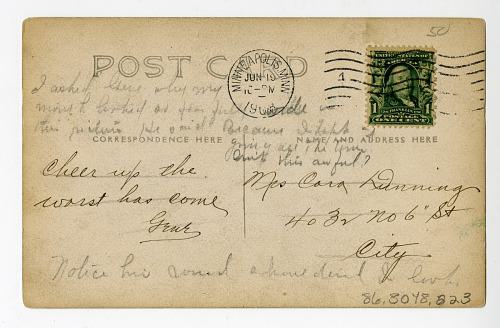 50
POST CARD
MINNEAPOLIS, MINN.
JUN 19
1908
1
UNITED STATES OF AMERICA
POSTAGE
ONE CENT
I asked Gene why my
mouth looked so
this picture He said Because I kept it
going all the time
Isn't this awful?
CORRESPONDENCE HERE
NAME AND ADDRESS HERE
Cheer up the
worst has come
Gene
Mrs Cora Dunning
403 2 No 6" St
City
Notice his round look.
86.3048.823